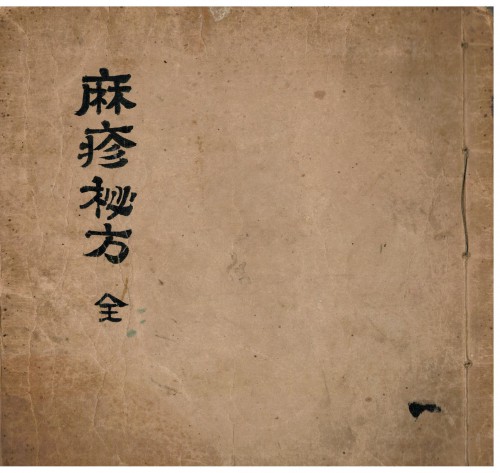 麻疹秘方 全